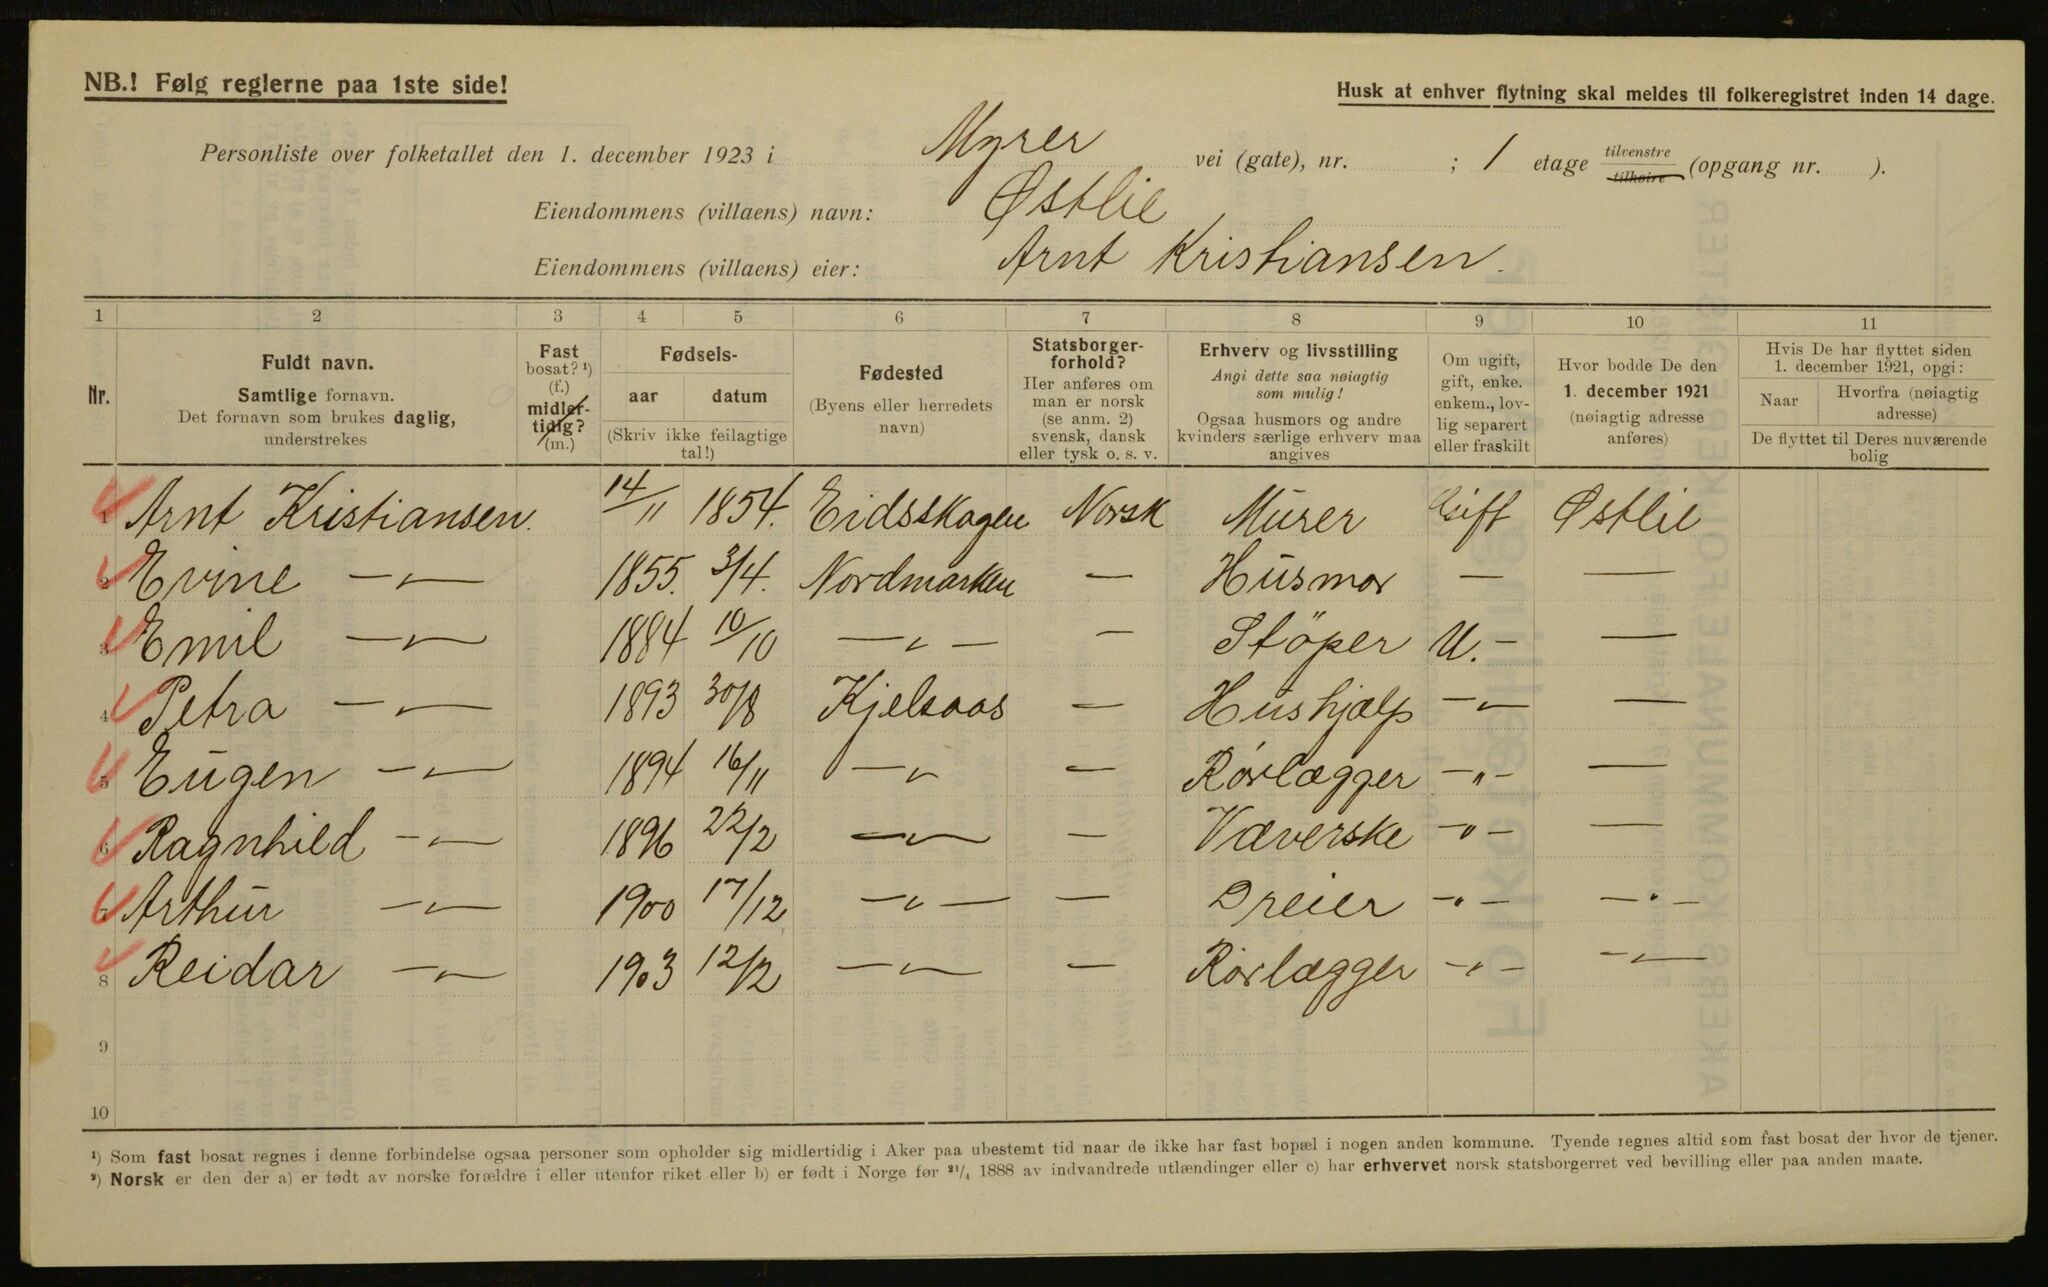 NB.! Følg reglerne paa 1ste side!
Husk at enhver flytning skal meldes til folkeregistret inden 14 dage.
Personliste over folketallet den 1. december 1923 i Myrer vei (gate), nr. ; 1 etage tilvenstre tilhøire (opgang nr. ).
Eiendommens (villaens) navn: Østlie
Eiendommens (villaens) eier: Arnt Kristiansen.
1 2 3 4 5 6 7 8 9 10 11
Nr.
Fuldt navn.
Samtlige fornavn.
Det fornavn som brukes daglig,
understrekes
Fast
bosat? ¹)
(f.)
midler-
tidig?
(m.)
Fødsels-
aar datum
(Skriv ikke feilagtige
tal!)
Fødested
(Byens eller herredets
navn)
Statsborger-
forhold?
Her anføres om
man er norsk
(se anm. 2)
svensk, dansk
eller tysk o. s. v.
Erhverv og livsstilling
Angi dette saa nøiagtig
som mulig!
Ogsaa husmors og andre
kvinders særlige erhverv maa
angives
Om ugift,
gift, enke.
enkem., lov-
lig separert
eller fraskilt
Hvor bodde De den
1. december 1921
(nøiagtig adresse
anføres)
Hvis De har flyttet siden
1. december 1921, opgi:
Naar
Hvorfra (nøiagtig
adresse)
De flyttet til Deres nuværende
bolig
1 Arnt Kristiansen. 14/11 1854. Eidsskogen Norsk Murer Gift Østlie
2 Evine —"— 1855. 3/4. Nordmarken — Husmor — —
3 Emil —"— 1884 10/10 —"— — Støper U. — —
4 Petra —"— 1893 30/8 Kjelsaas — Hushjælp —"— —
5 Eugen —"— 1894 16/11 —"— — Rørlægger —"— —
6 Ragnhild —"— 1896 22/2 —"— — Væverske —"— —
7 Arthur —"— 1900 17/12 —"— — Dreier —"— —"—
8 Reidar —"— 1903 12/2 —"— — Rørlægger —"— —"—
9
10
¹) Som fast bosat regnes i denne forbindelse ogsaa personer som opholder sig midlertidig i Aker paa ubestemt tid naar de ikke har fast bopæl i nogen anden kommune. Tyende regnes altid som fast bosat der hvor de tjener.
²) Norsk er den der a) er født av norske forældre i eller utenfor riket eller b) er født i Norge før ²¹/₄ 1888 av indvandrede utlændinger eller c) har erhvervet norsk statsborgerret ved bevilling eller paa anden maate.